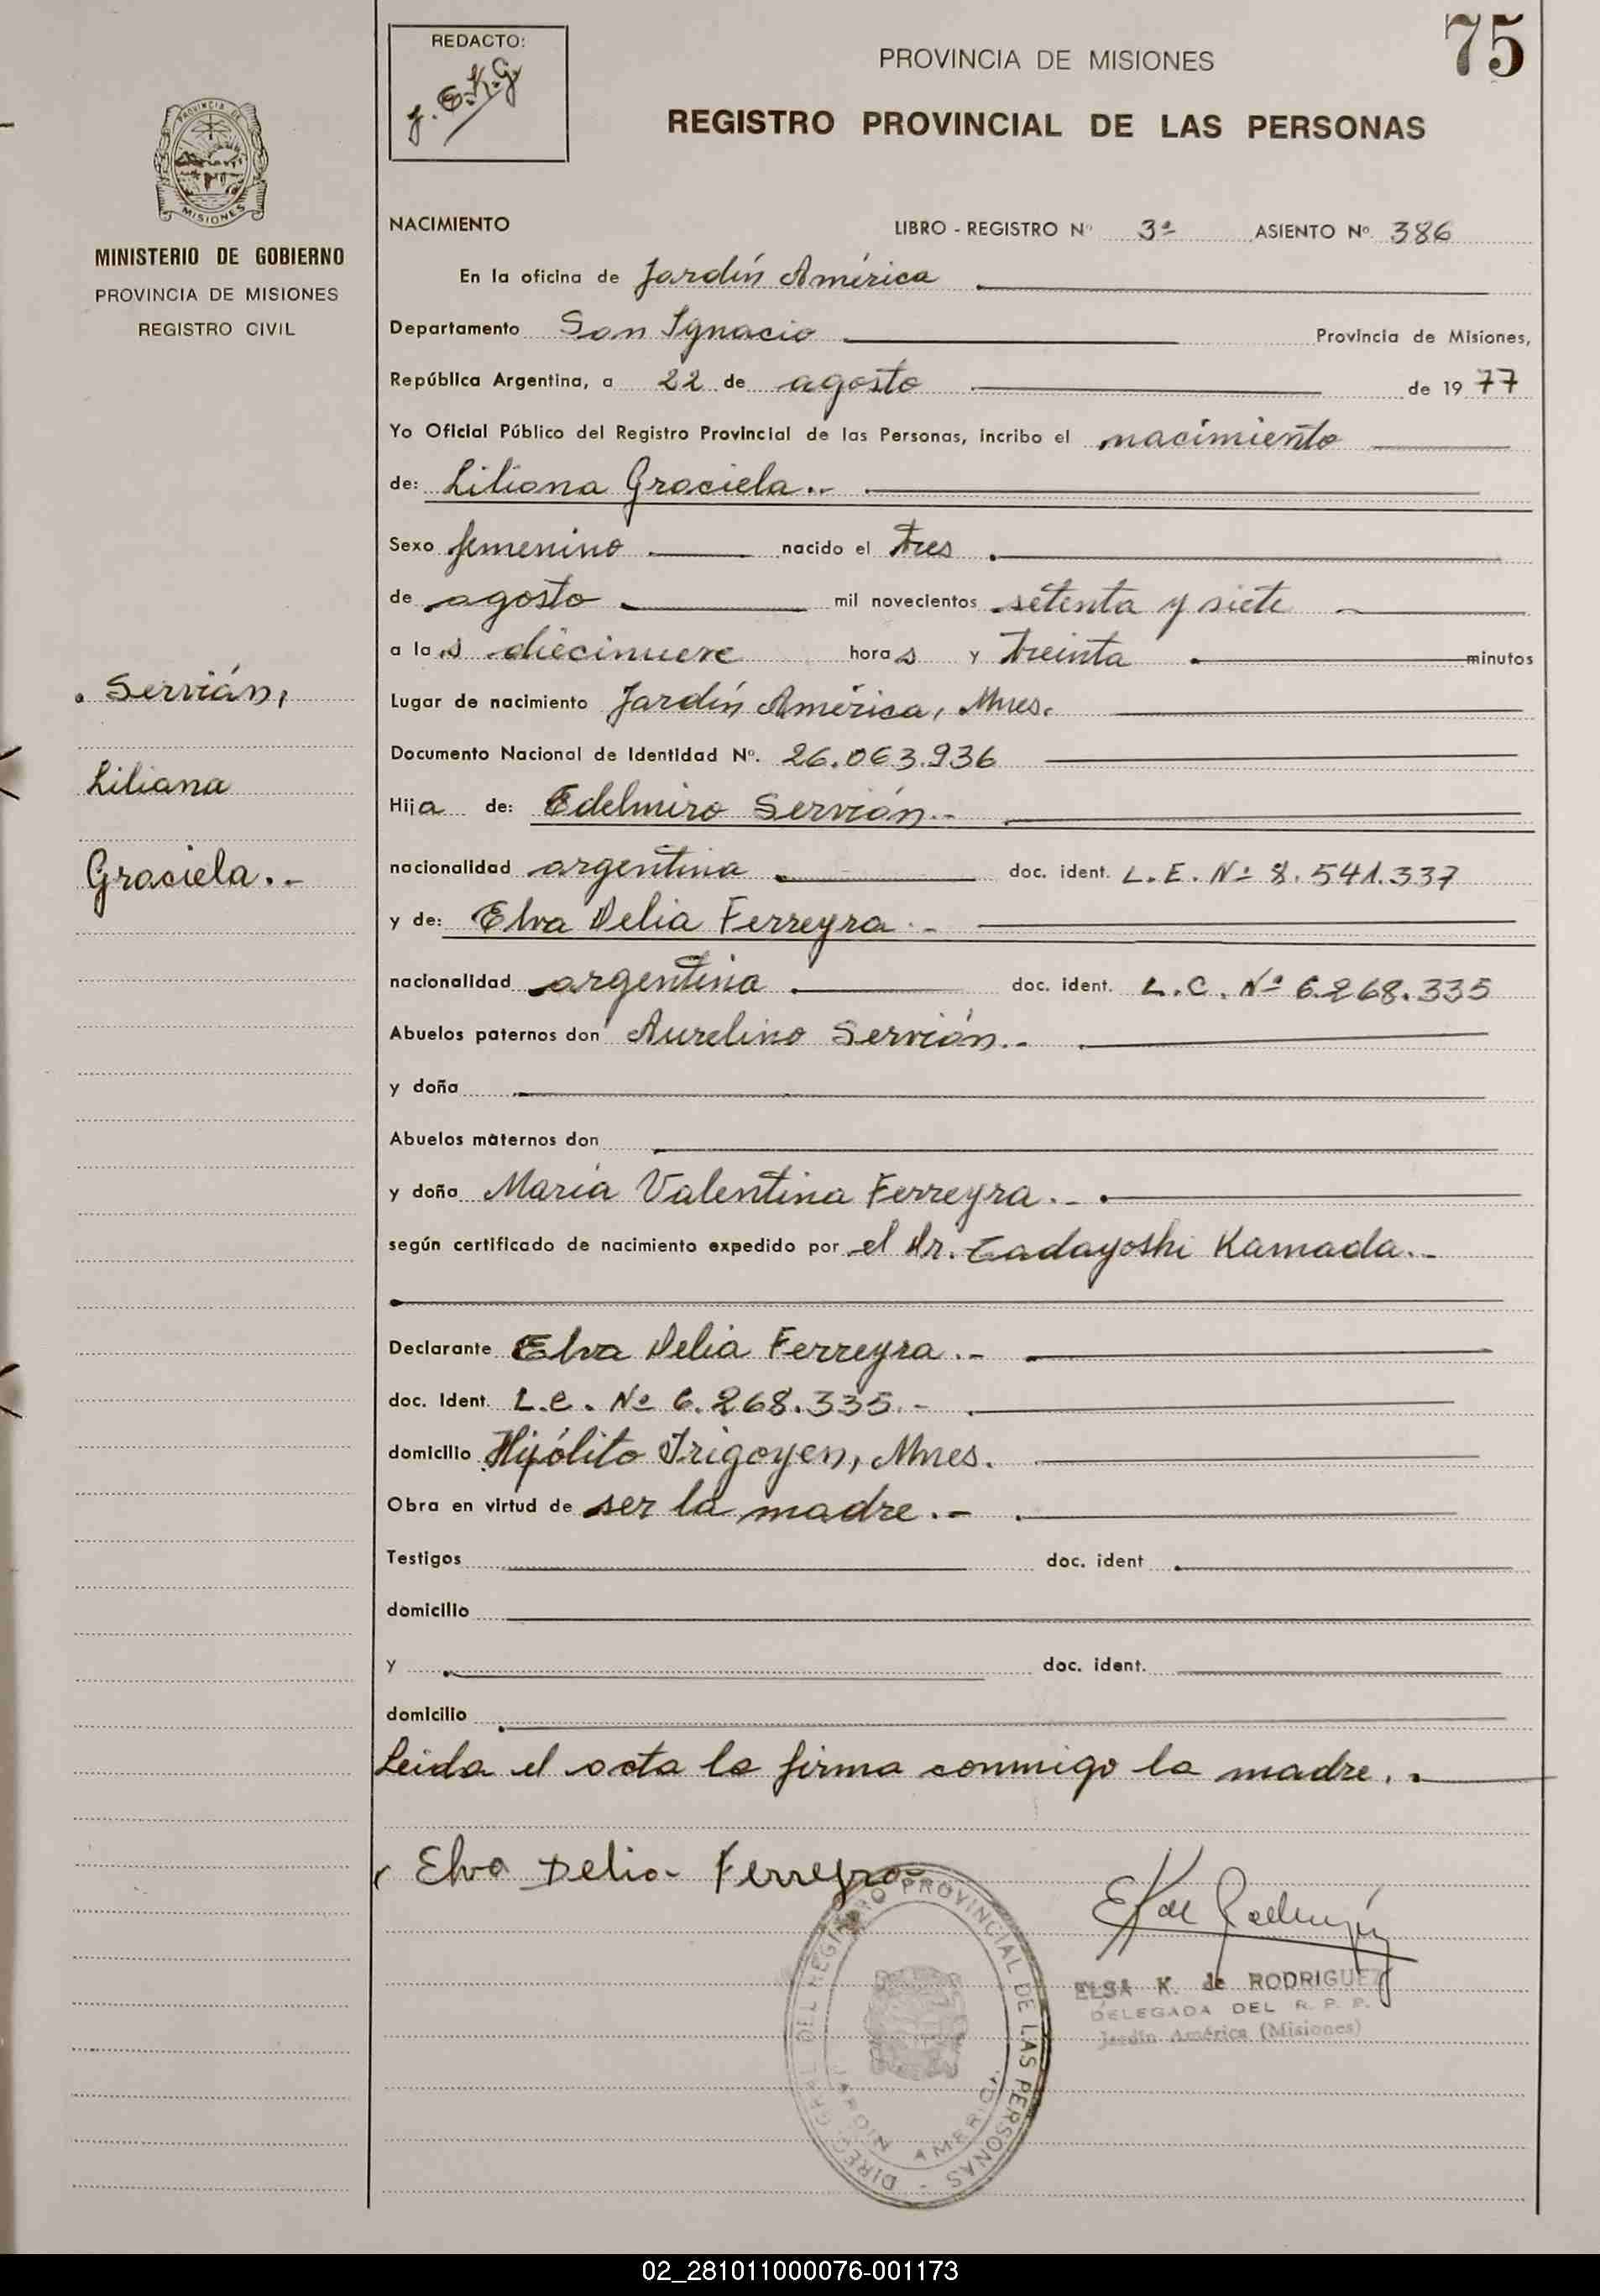 75
REDACTO:
PROVINCIA DE MISIONES
REGISTRO PROVINCIAL DE LAS PERSONAS
PROVINCIA DE
MISIONES
MINISTERIO DE GOBIERNO
PROVINCIA DE MISIONES
REGISTRO CIVIL
NACIMIENTO LIBRO - REGISTRO Nº 3ª ASIENTO Nº 386
En la oficina de Jardín América
Departamento San Ignacio Provincia de Misiones,
República Argentina, a 22 de agosto de 1977
Yo Oficial Público del Registro Provincial de las Personas, incribo el nacimiento
de: Liliana Graciela.-
Sexo femenino nacido el tres
de agosto mil novecientos setenta y siete
a las diecinueve horas y treinta minutos
Servián,
Lugar de nacimiento Jardín América, Mnes.
Documento Nacional de Identidad Nº. 26.063.936
Liliana
Hija de: Edelmiro Servián.-
Graciela.-
nacionalidad argentina doc. ident. L.E. Nº 8.541.337
y de: Elva Delia Ferreyra.-
nacionalidad argentina doc. ident. L.C. Nº 6.268.335
Abuelos paternos don Aurelino Servián.-
y doña
Abuelos maternos don
y doña María Valentina Ferreyra.-
según certificado de nacimiento expedido por el Dr. Tadayoshi Kamada.-
Declarante Elva Delia Ferreyra.-
doc. Ident. L.C. Nº 6.268.335.-
domicilio Hipólito Irigoyen, Mnes.
Obra en virtud de ser la madre.-
Testigos doc. ident
domicilio
y doc. ident.
domicilio
Leida el acta la firma conmigo la madre.
Elva Delia Ferreyra
DIREC. GRAL. DEL REGISTRO PROVINCIAL DE LAS PERSONAS -
JARDIN AMERICA
ELSA K. de RODRIGUEZ
DELEGADA DEL R. P. P.
Jardín América (Misiones)
02_281011000076-001173